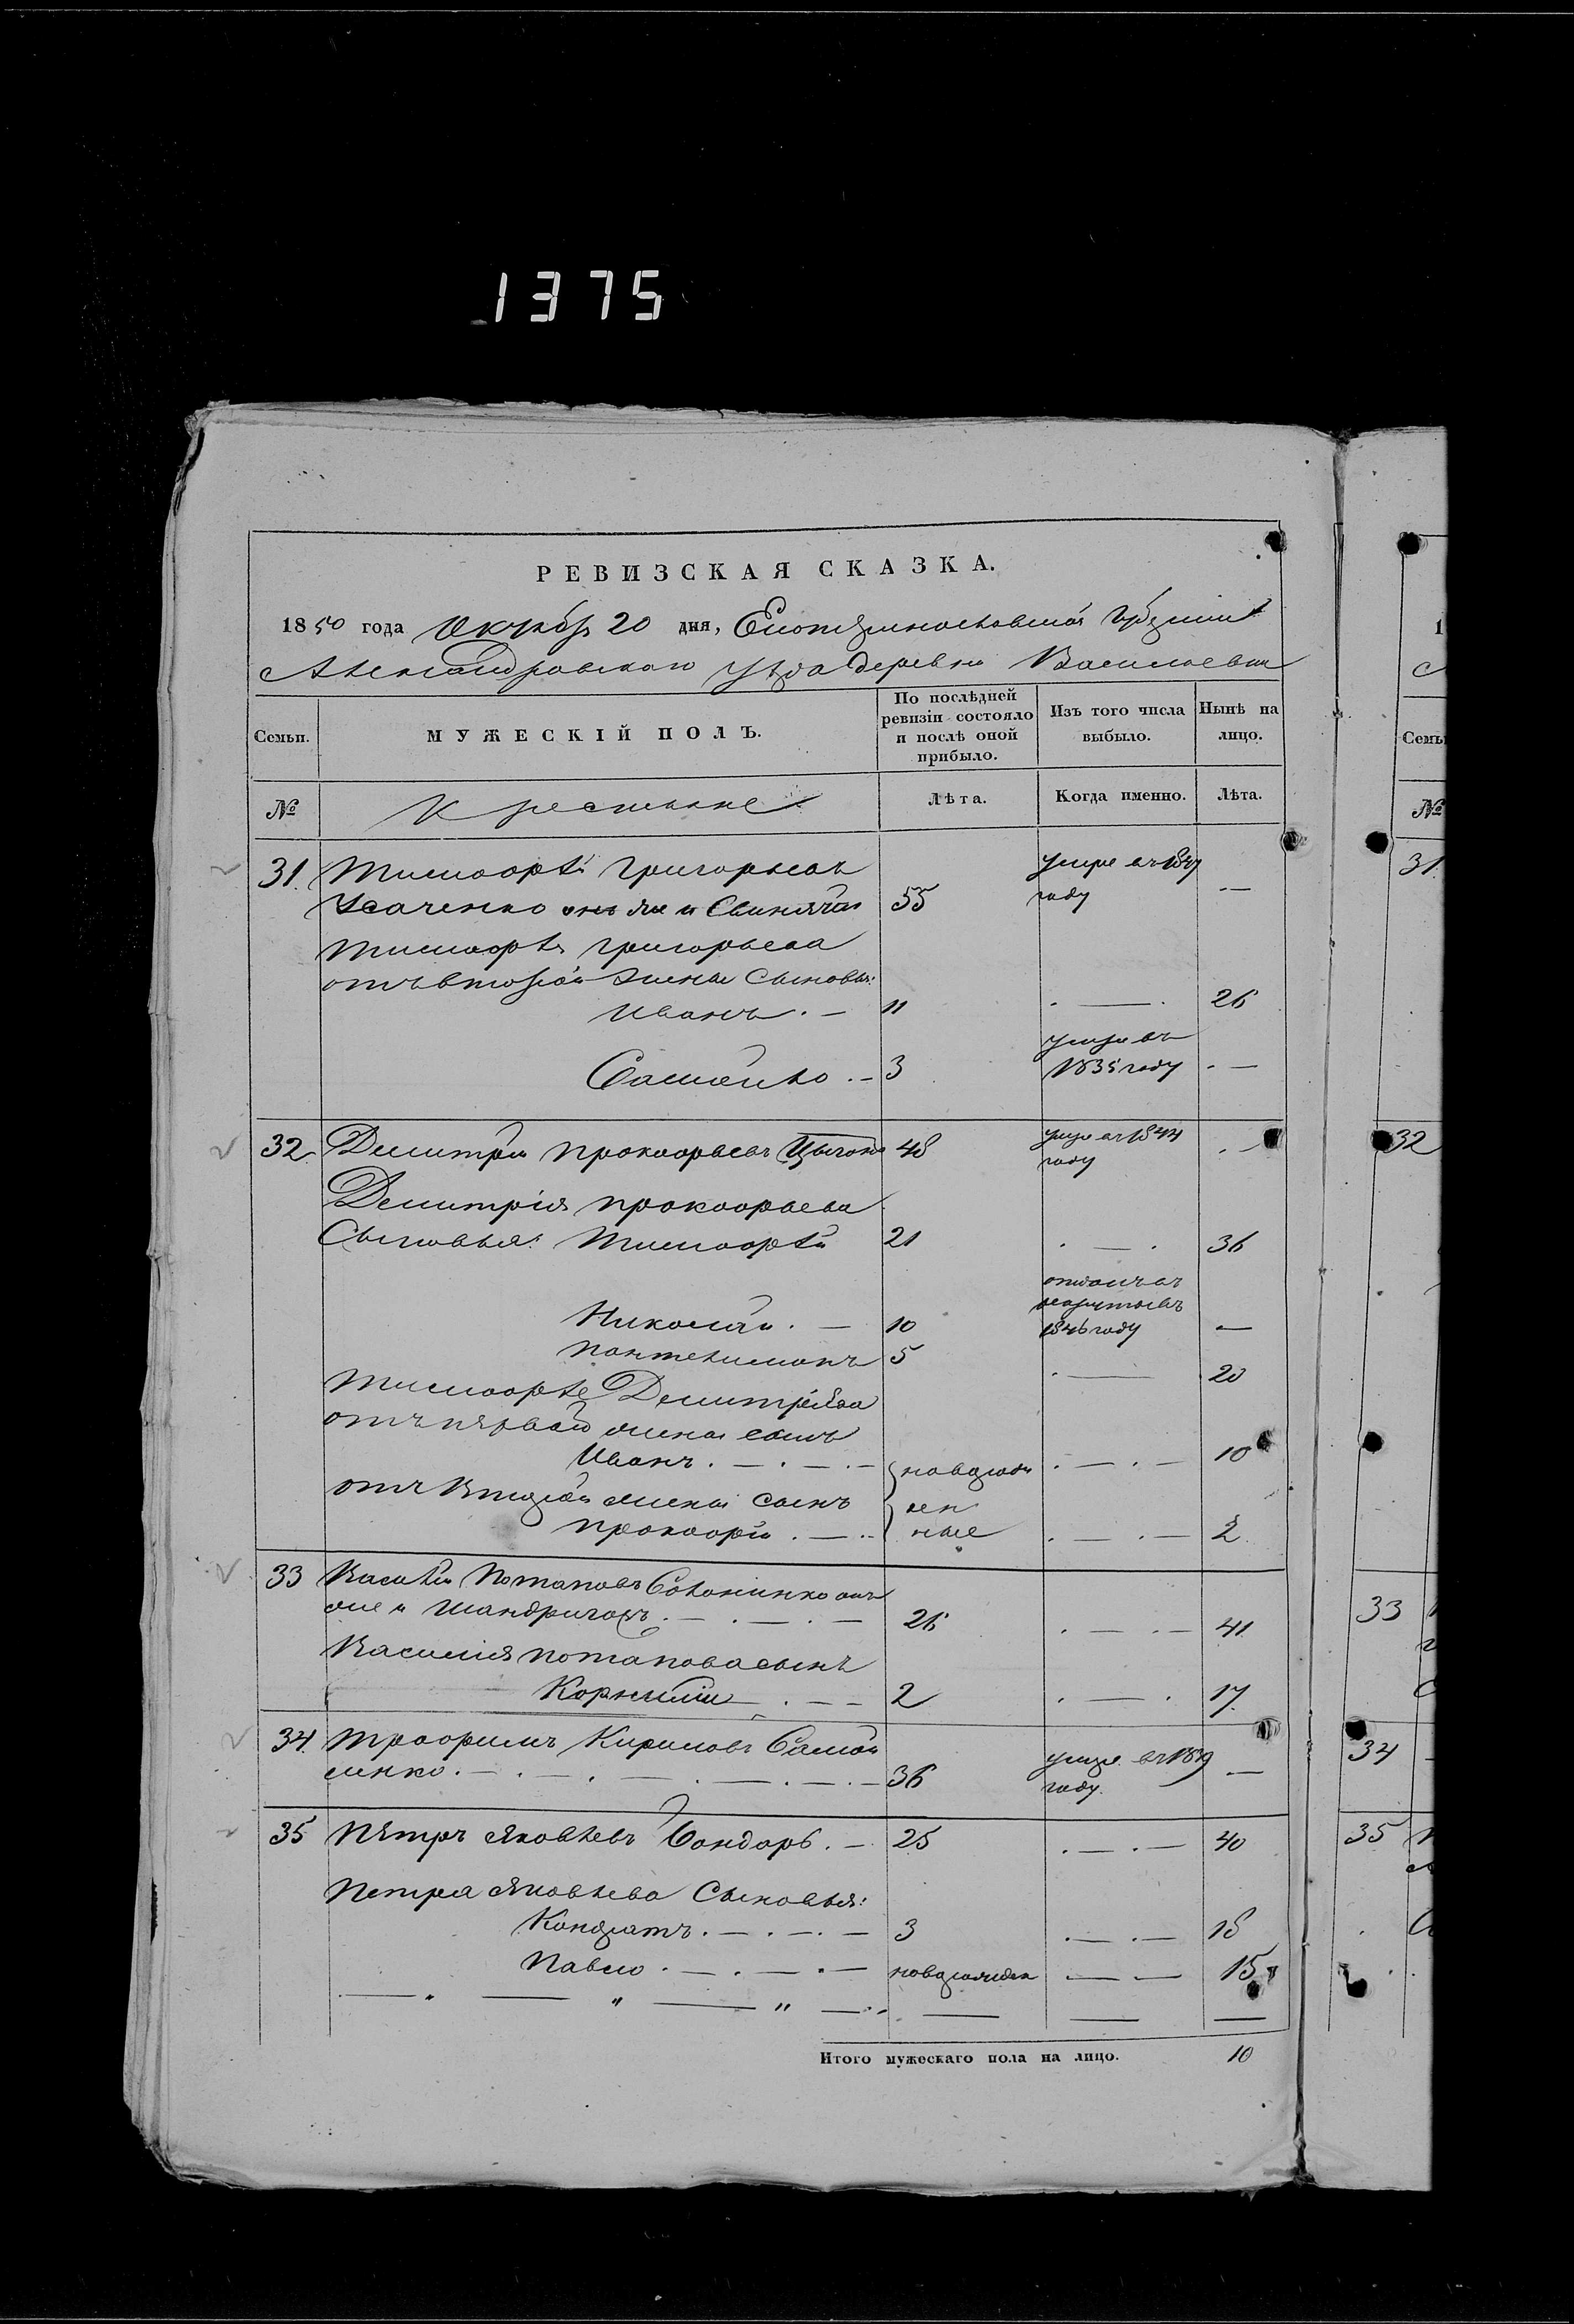 1375
РЕВИЗСКАЯ СКАЗКА.
1850 года Октября 20 дня, Екатеринославской Губерніи
Александровского уѣзда деревни Васильевки
Семьи.
МУЖЕСКІЙ ПОЛЪ.
По послѣдней ревизіи состояло и послѣ оной прибыло.
Изъ того числа выбыло.
Нынѣ на лицо.
№
Крестьяне
Лѣта.
Когда именно.
Лѣта.
31. Тимофѣй Григорьевъ
Усаченко онъ же и Свинячій 55 умре въ 1847 году —
Тимофѣя Григорьева
отъ второй жены Сыновья:
Иванъ. — 11 . — . 26
Самойло .- 3 умре въ 1835 году . —
32. Дмитрій Прокофьевъ Цыганъ 48 умре въ 1844 году . —
Дмитрія Прокофьева
Сыновья: Тимофѣй 21 . — . 36
Николай. — 10 отданъ въ рекруты въ 1846 году —
Пантелимонъ 5 . — 20
Тимофѣя Дмитріева
отъ первой жены сынъ
Иванъ . — . — . — новорож . — . — 10
отъ второй жены сынъ ден
Прокофій . — .. ные . — . — 2
33 Василій Потаповъ онъ
же и . — . — . — 26 . — . — 41
Василія Потапова сынъ
Корнилій — . — — 2 . — . 17.
34. Трофимъ Кириловъ Самой
ленко . — . — . — . — . — 36 умре въ 1849 году. —
35 Петръ Яковлевъ Бондарь . — 25 . — . — 40
Петра Яковлева Сыновья:
Кондратъ . — . — . — 3 . — . — 18
Павло . — . — . — новорожден — — 15
Итого мужескаго пола на лицо. 10
1
С
Семьи
№
31.
32
33
34
35